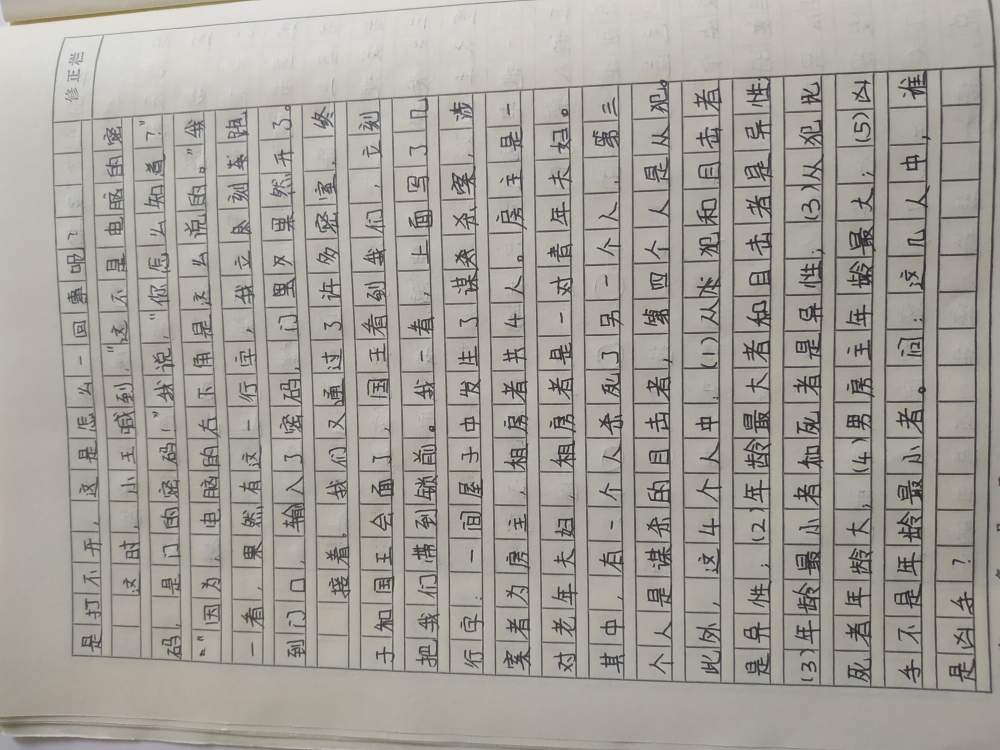 修正栏
是打不开，这是怎么一回事呢？
这时，小王喊到，“这不是电脑的密
码，是门的密码！”我说，“你怎么知道？”
“因为，电脑的右下角是这么说的。”我
一看，果然有这一行字，我立刻跑
到门口，输入了密码，门里又果然开了。
接着，我们又通过了许多密室，终
于和国王会面了，国王看到我们，立刻
把我们带到锁前。我一看，上面写了几
行字：一间屋子中发生了谋杀案，涉
案者为房主，租房者共4人。房主是一
对老年夫妇，租房者是一对青年夫妇。
其中，有一个人杀死了另一个人，第三
个人是谋杀的目击者，第四个人是从犯。
此外，这4个人中，(1)从犯和目击者
是异性；(2)年龄最大者和目击者是异性
(3)年龄最小者和死者是异性；(3)从犯比
死者年龄大，(4)男房主年龄最大；(5)凶
手不是年龄最小者。问：这几人中，谁
是凶手？